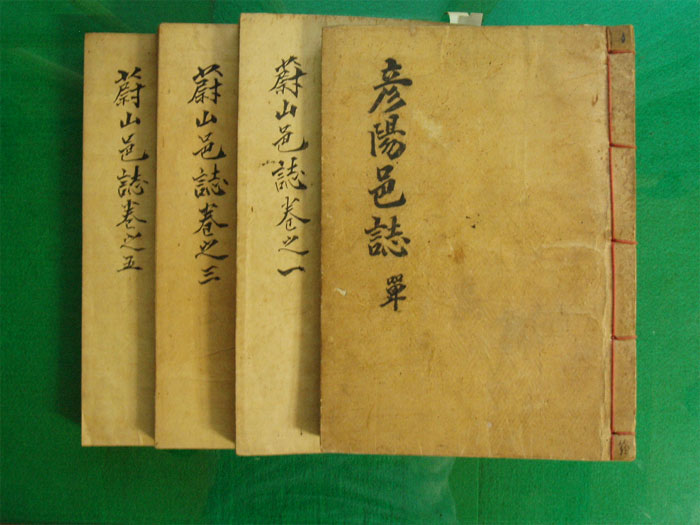 彦陽邑誌 單
蔚山邑誌卷之一
蔚山邑誌卷之三
蔚山邑誌卷之五